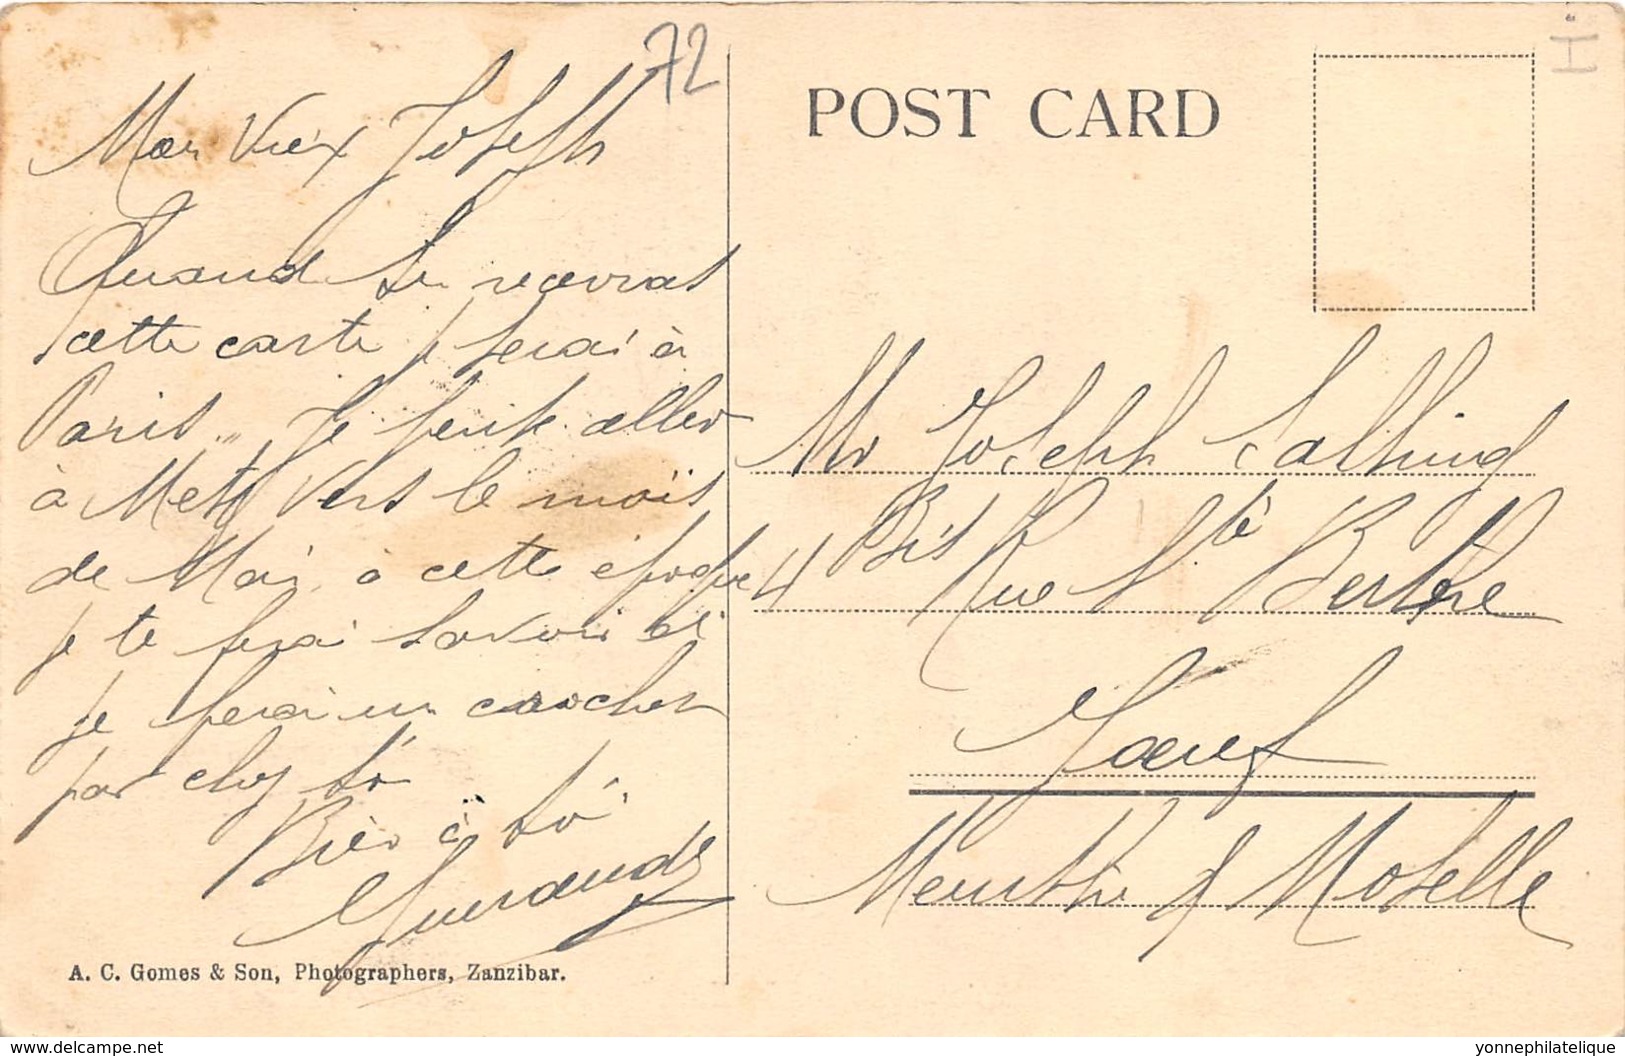 72
Mon Viex Joseph
Quand tu recevras
cette carte je serai à
Paris... Je pense aller
à Metz vers le mois
de Mai, à cette époque
je te ferai savoir si
je ferai un crochet
par chez toi
Bien à toi
A. C. Gomes & Son, Photographers, Zanzibar.
POST CARD
Mr Joseph
4 Bis Rue Ste Berthe
Joeuf
Meurthe & Moselle
www.delcampe.net
yonnephilatelique